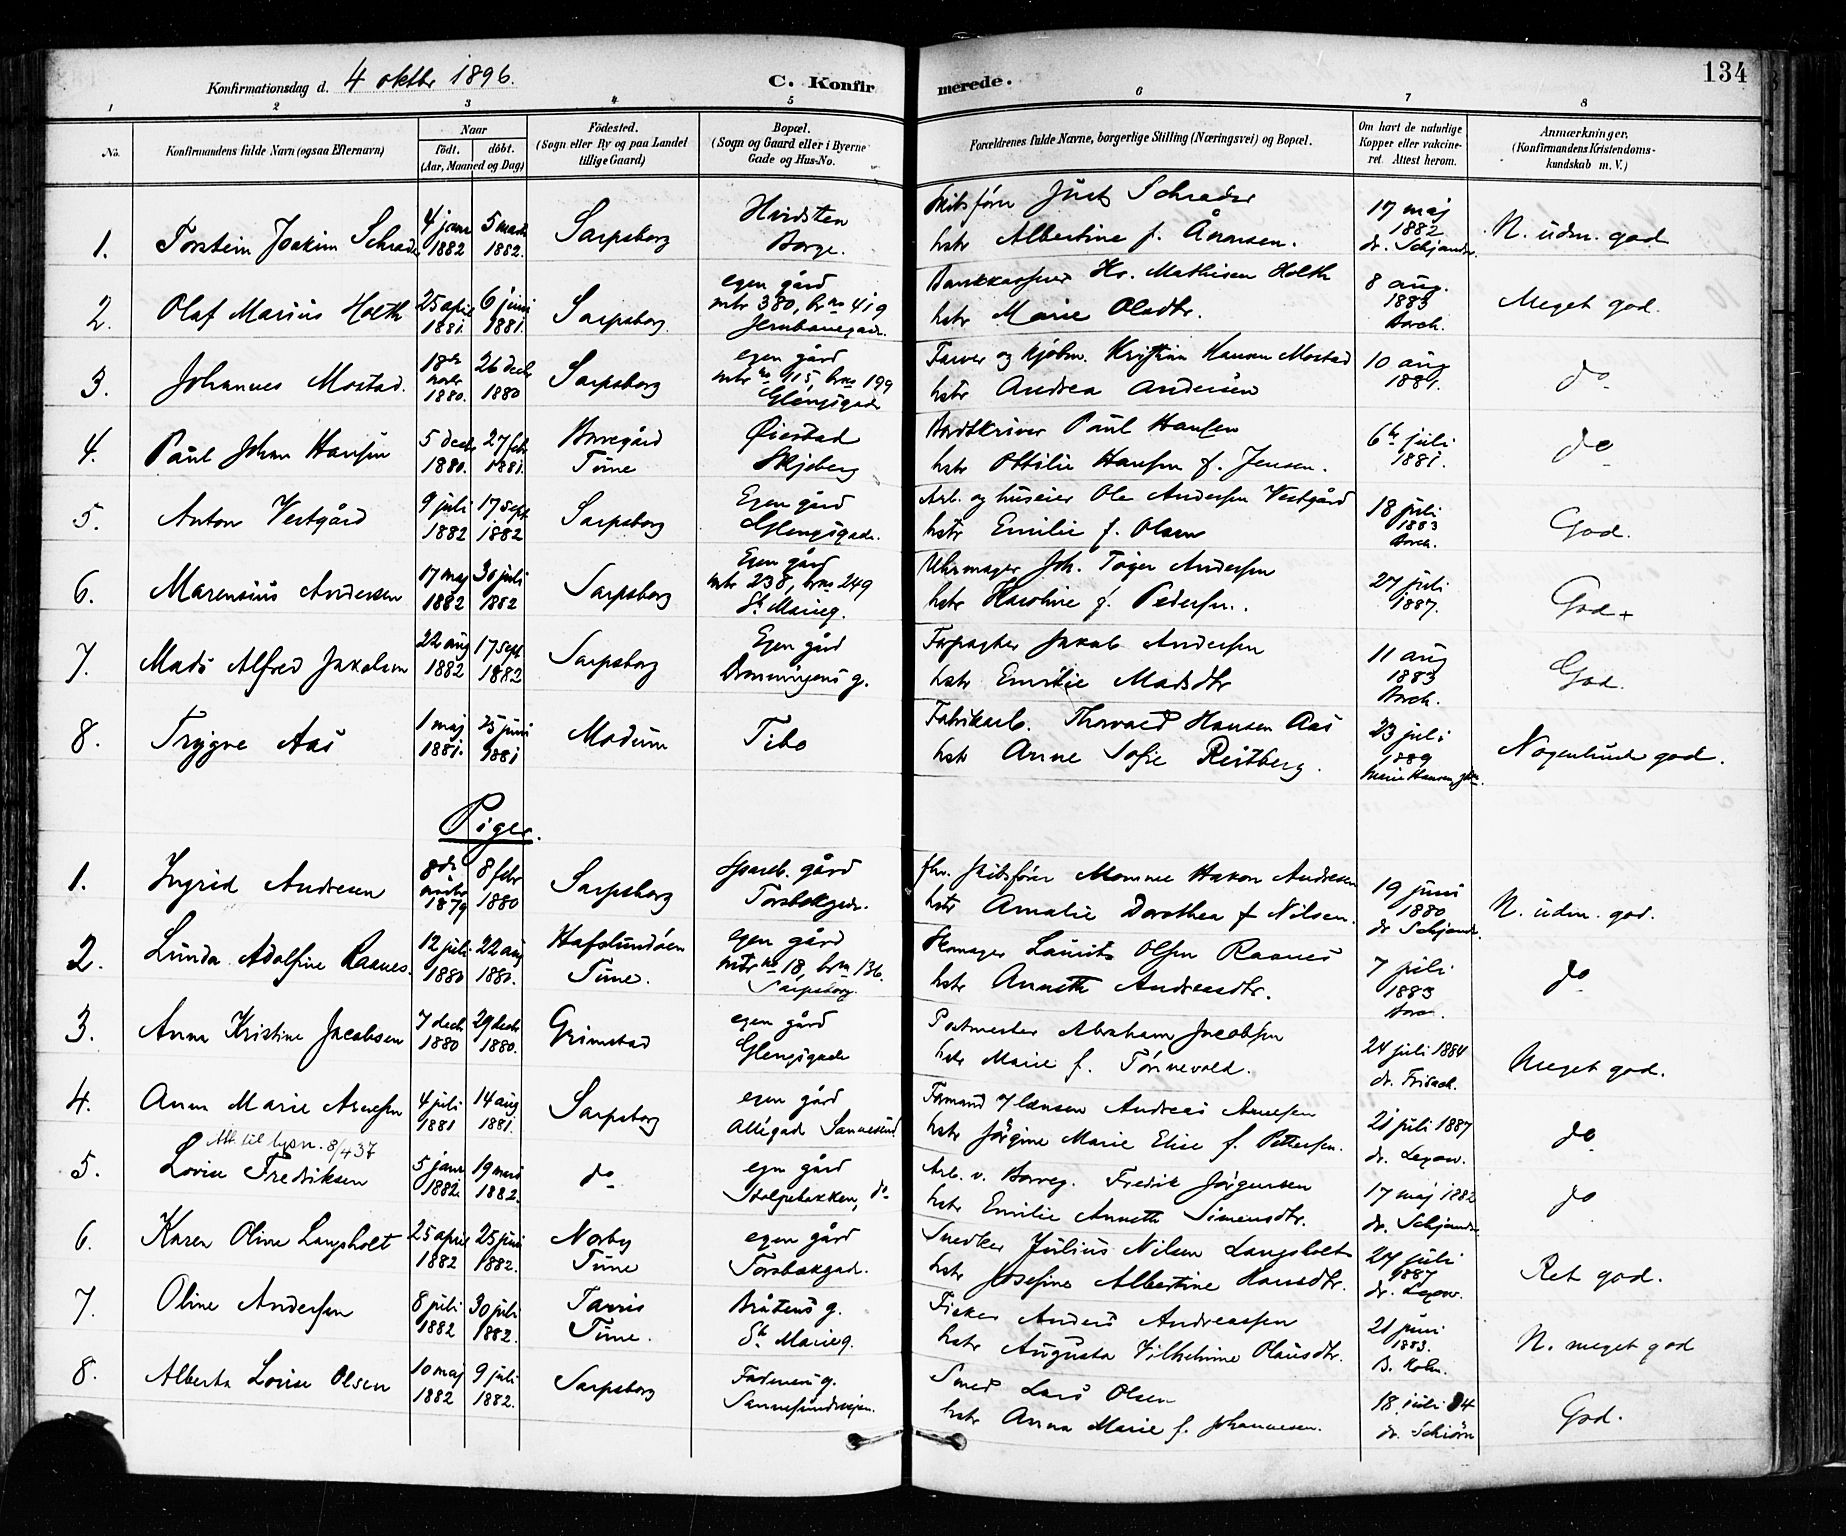 134
Konfirmationsdag d. 4 oktbr 1896.
C. Konfirmerede.
1 2 3 4 5 6 7 8
No.
Konfirmandens fulde Navn (ogsaa Efternavn)
Naar
født. døbt.
(Aar, Maaned og Dag)
Fødested.
(Sogn eller By og paa Landet
tillige Gaard)
Bopæl.
(Sogn og Gaard eller i Byerne
Gade og Hus-No.
Forældrenes fulde Navne, borgerlige Stilling (Næringsvei) og Bopæl.
Om havt de naturlige
Kopper eller vakcine-
ret. Attest herom.
Anmærkninger.
(Konfirmandens Kristendoms-
kundskab m. V.)
1. Torstein Joakim Schrader
4 janr 1882
5 marts 1882.
Sarpsborg
Hvidsten
Borge.
Skibsfører Just Schrader
hstr Albertine f. Ånonsen.
17 maj
1882
dr. Schjander
N. udm. god
2. Olaf Marius Holth
25 april 1881.
6 juni 1881.
Sarpsborg.
egen gård
mtr 380, brno 419
Jernbanegade.
Bankkasserer Hr. Mathisen Holth
hstr Marie Olsdtr.
8 aug.
1883
Borch.
Meget god.
3. Johannes Mostad.
18de novbr 1880.
26 decbr 1880
Sarpsborg
egen gård
mtr no 415, brno 199
Glengsgade
Farver og kjøbm. Kristian Hansen Mostad
hstr Andrea Andersen
10 aug
1881.
do
4. Paul Johan Hansen
5 decbr 1880.
27 febr 1881.
Borregård
Tune
Øiestad
Skjeberg
Bordskriver Paul Hansen
hstr Ottilie Hansen f. Jensen.
6te juli
1881.
do
5. Anton Vestgård
9 juli 1882
17 sept 1882
Sarpsborg
Egen gård
Glengsgade.
Arb. og huseier Ole Andersen Vestgård
hstr Emilie f. Olsen
18 juli
1883
Borch.
God.
6. Marensius Andersen
17 maj 1882
30 juli 1882
Sarpsborg
Egen gård
mtr 238, brno 249
St Marieg.
Uhrmager Joh. Tøger Andersen
hstr Karoline f. Pedersen.
27 juli
1887.
God +
7. Mads Alfred Jakobsen
22 aug 1882
17 sept 1882
Sarpsborg
Egen gård
Dronningens g.
Forpagter Jakob Andersen
hstr Emilie Madsdtr
11 aug
1883
Borch.
God.
8. Trygve Aas
1 maj 1881.
25 juni 1881
Modum
Tibo
Fabrikarb. Thorvald Hansen Aas
hstr Anne Sofie Reitberg.
23 juli
1889
Marie Hansen
Nogenlunde god.
Piger.
1. Ingrid Andresen
8de 1879
8 febr 1880
Sarpsborg
Spareb. gård
Torsbækgade.
fhv. skibsfører Momme Hakon Andresen
hstr Amalie Dorothea f Nilsen.
19 juni
1880
dr Schjander.
N. udm. god.
2. Lunda Adolfine Raanes.
12 juli 1880
22 aug 1880.
Hafslundsøen
Tune.
egen gård
mtr no 18, brno 136.
Sarpsborg.
Skomager Laurits Olsen Raanes
hstr Annette Andreasdtr.
7 juli
1883
Borch.
do
3. Anna Kristine Jacobsen
7 decbr 1880
29 decbr 1880.
Grimstad
egen gård
Glengsgade
Postmester Abraham Jacobsen
hstr Marie f. Tönnevold.
24 juli 1884
dr. Frisak.
Meget god.
4. Anna Marie Arnesen
4 juli 1881
14 aug 1881.
Sarpsborg
egen gård
Allégad Sannesund
Formand Andreas Arnesen
hstr Jørgine Marie Elise f. Pettersen.
21 juli 1887
dr. Lexow.
do
Att. til lysn. 8/4 37
5. Lovise Fredriksen
5 janr 1882.
19 marts 1882.
do
egen gård
Stolpebakken, do
Arb. v. Borreg. Fredrik Jørgensen
hstr Emilie Annette Simensdtr.
17 maj 1882
dr. Schjander
do
6. Karen Oline Langsholt
25 april 1882
25 juni 1882.
Norby
Tune
egen gård
Torsbækgad.
Snedker Julius Nilsen Langsholt
hstr Josefine Albertine Hansdtr.
27 juli
1887
dr. Lexow.
Ret god.
7. Oline Andersen
8 juli 1882
30 juli 1882.
Tune.
Bråtens g.
St Marieg.
Fisker Anders Andreassen
hstr Augusta Vilhelmine Olausdtr.
21 juni
1883.
B. Holm.
N. meget god
8. Alberta Lovise Olsen
10 maj 1882
9 juli 1882.
Sarpsborg
Faderens g.
Sannesundsvejen.
Smed Lars Olsen
hstr Anna Marie f. Johannesen.
18 juli 84
dr. Schiørn
God.